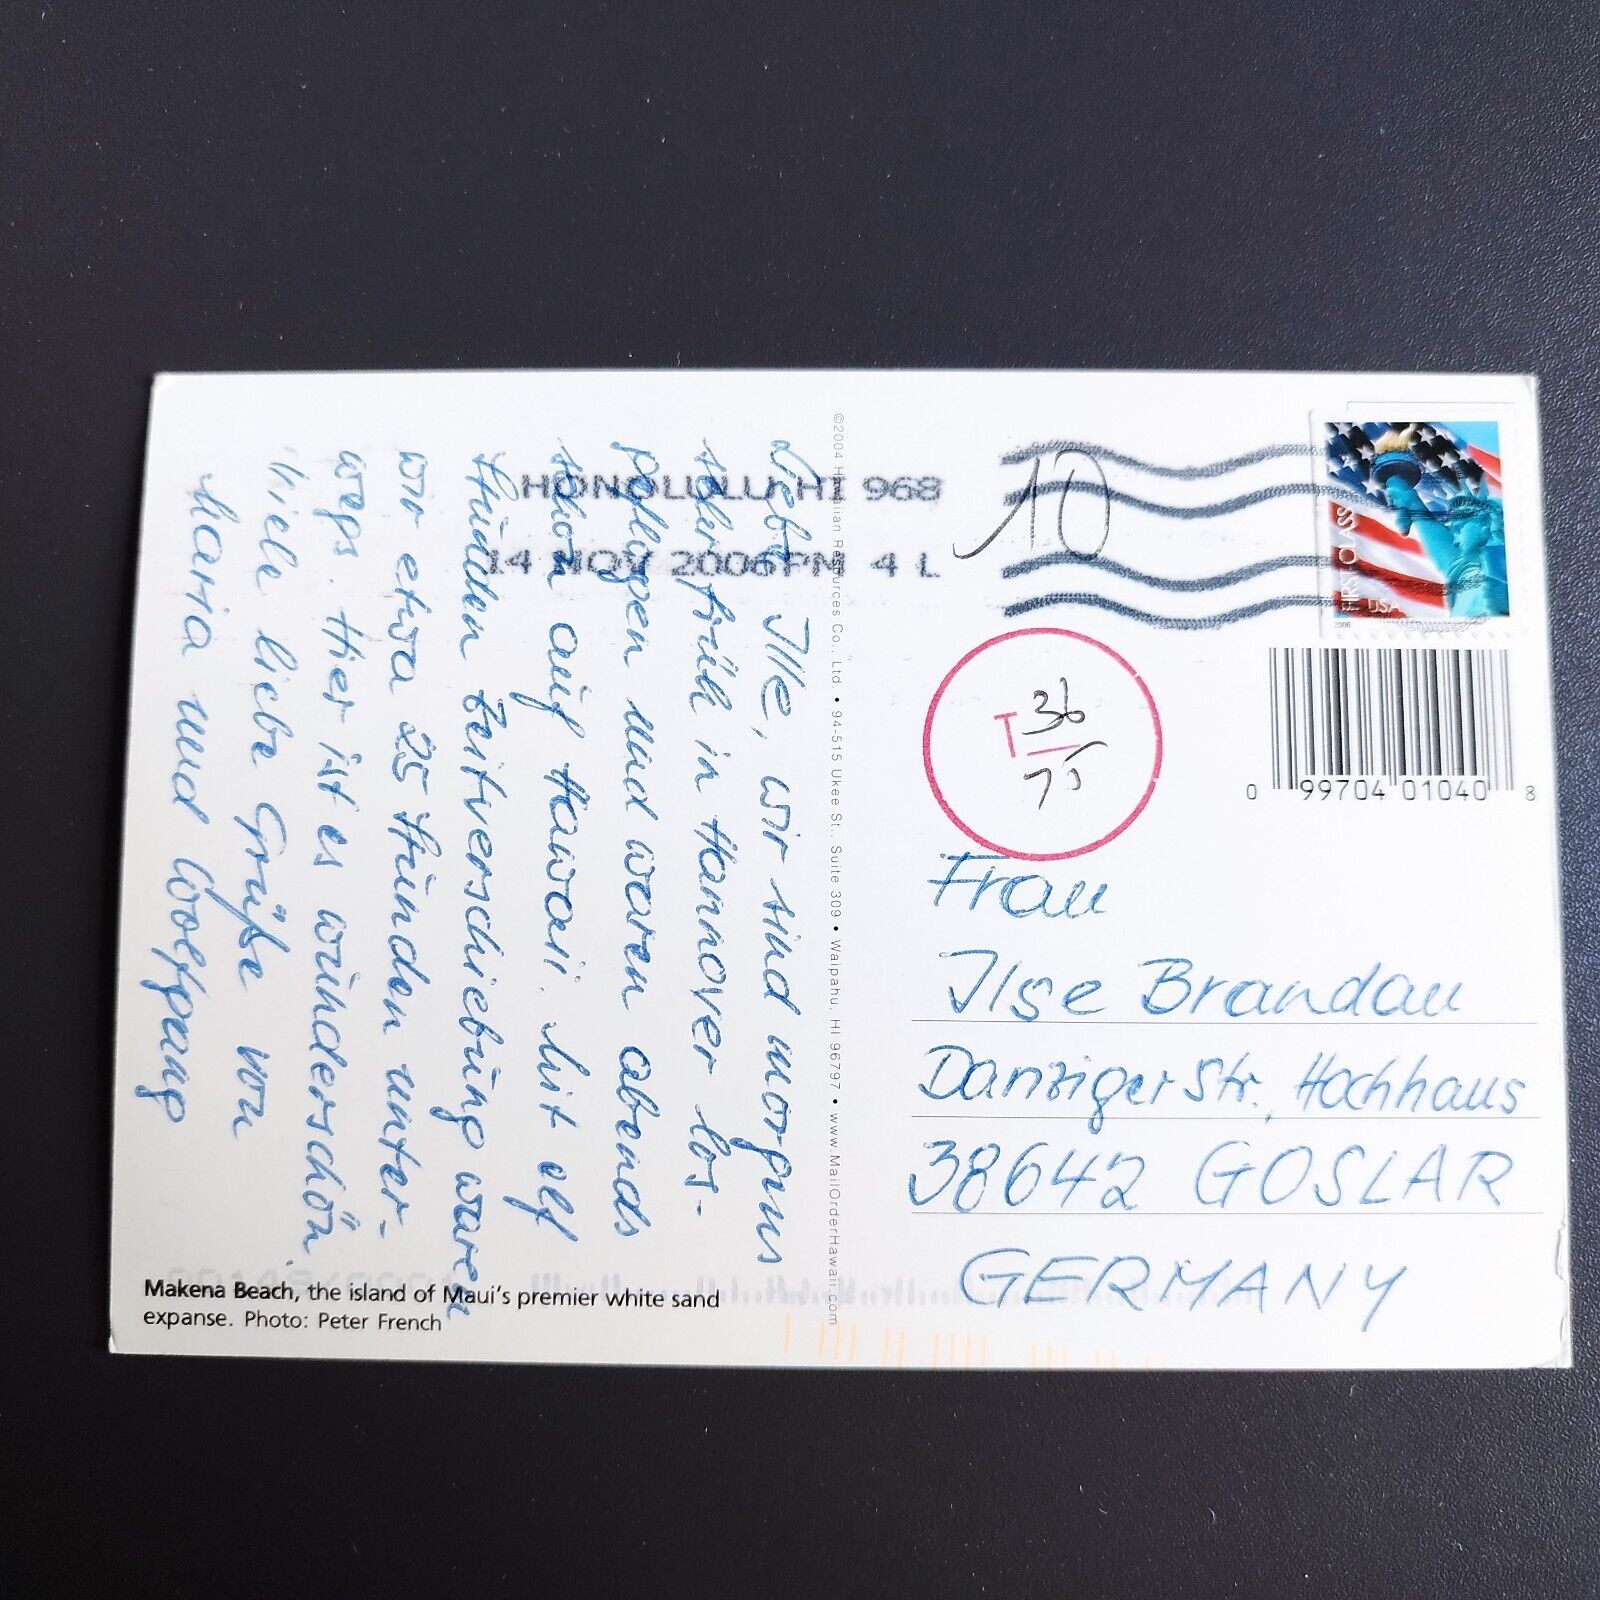 Liebe Ilse, wir sind morgens
sehr früh in Hannover los-
geflogen und waren abends
schon auf Hawaii. Mit elf
Stunden Zeitverschiebung waren
wir etwa 25 Stunden unter-
wegs. Hier ist es wunderschön.
Viele liebe Grüße von
Maria und Wolfgang
Makena Beach, the island of Maui's premier white sand
expanse. Photo: Peter French
©2004 Hawaiian Resources Co., Ltd. • 94-515 Ukee St., Suite 309 • Waipahu, HI 96797 • www.MailOrderHawaii.com
HONOLULU HI 968
14 NOV 2006 PM 4 L
10
FIRST CLASS
USA
2006
T 36
75
0 99704 01040 8
Frau
Ilse Brandau
Danziger Str., Hochhaus
38642 GOSLAR
GERMANY